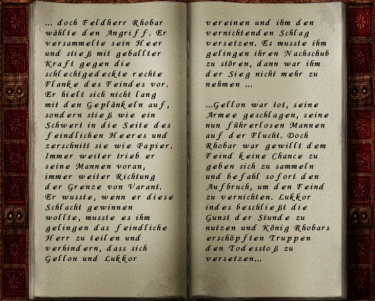 ... doch Feldherr Rhobar
wählte den Angriff. Er
versammelte sein Heer
und stieß mit geballter
Kraft gegen die
schlechtgedeckte rechte
Flanke des Feindes vor.
Er hielt sich nicht lang
mit den Geplänkeln auf,
sondern stieß wie ein
Schwert in die Seite des
feindlichen Heeres und
zerschnitt sie wie Papier.
Immer weiter trieb er
seine Mannen voran,
immer weiter Richtung
der Grenze von Varant.
Er wusste, wenn er diese
Schlacht gewinnen
wollte, musste es ihm
gelingen das feindliche
Herr zu teilen und
verhindern, dass sich
Gellon und Lukkor
vereinen und ihm den
vernichtenden Schlag
versetzen. Es musste ihm
gelingen ihren Nachschub
zu stören, dann war ihm
der Sieg nicht mehr zu
nehmen ...

...Gellon war tot, seine
Armee geschlagen, seine
nun führerlosen Mannen
auf der Flucht. Doch
Rhobar war gewillt dem
Feind keine Chance zu
geben sich zu sammeln
und befahl sofort den
Aufbruch, um den Feind
zu vernichten. Lukkor
indes beschließt die
Gunst der Stunde zu
nutzen und König Rhobars
erschöpften Truppen
den Todesstoß zu
versetzen...